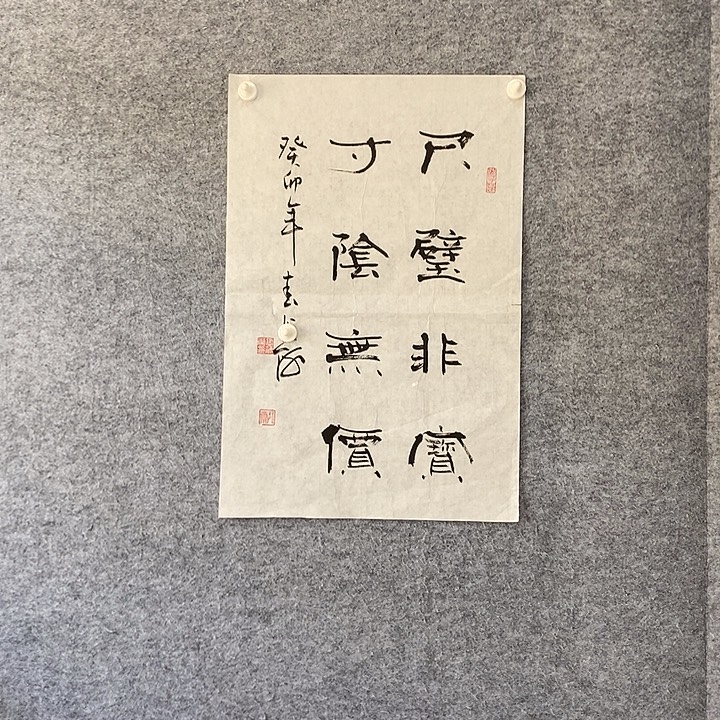 尺璧非寶
寸陰無價
癸卯年春